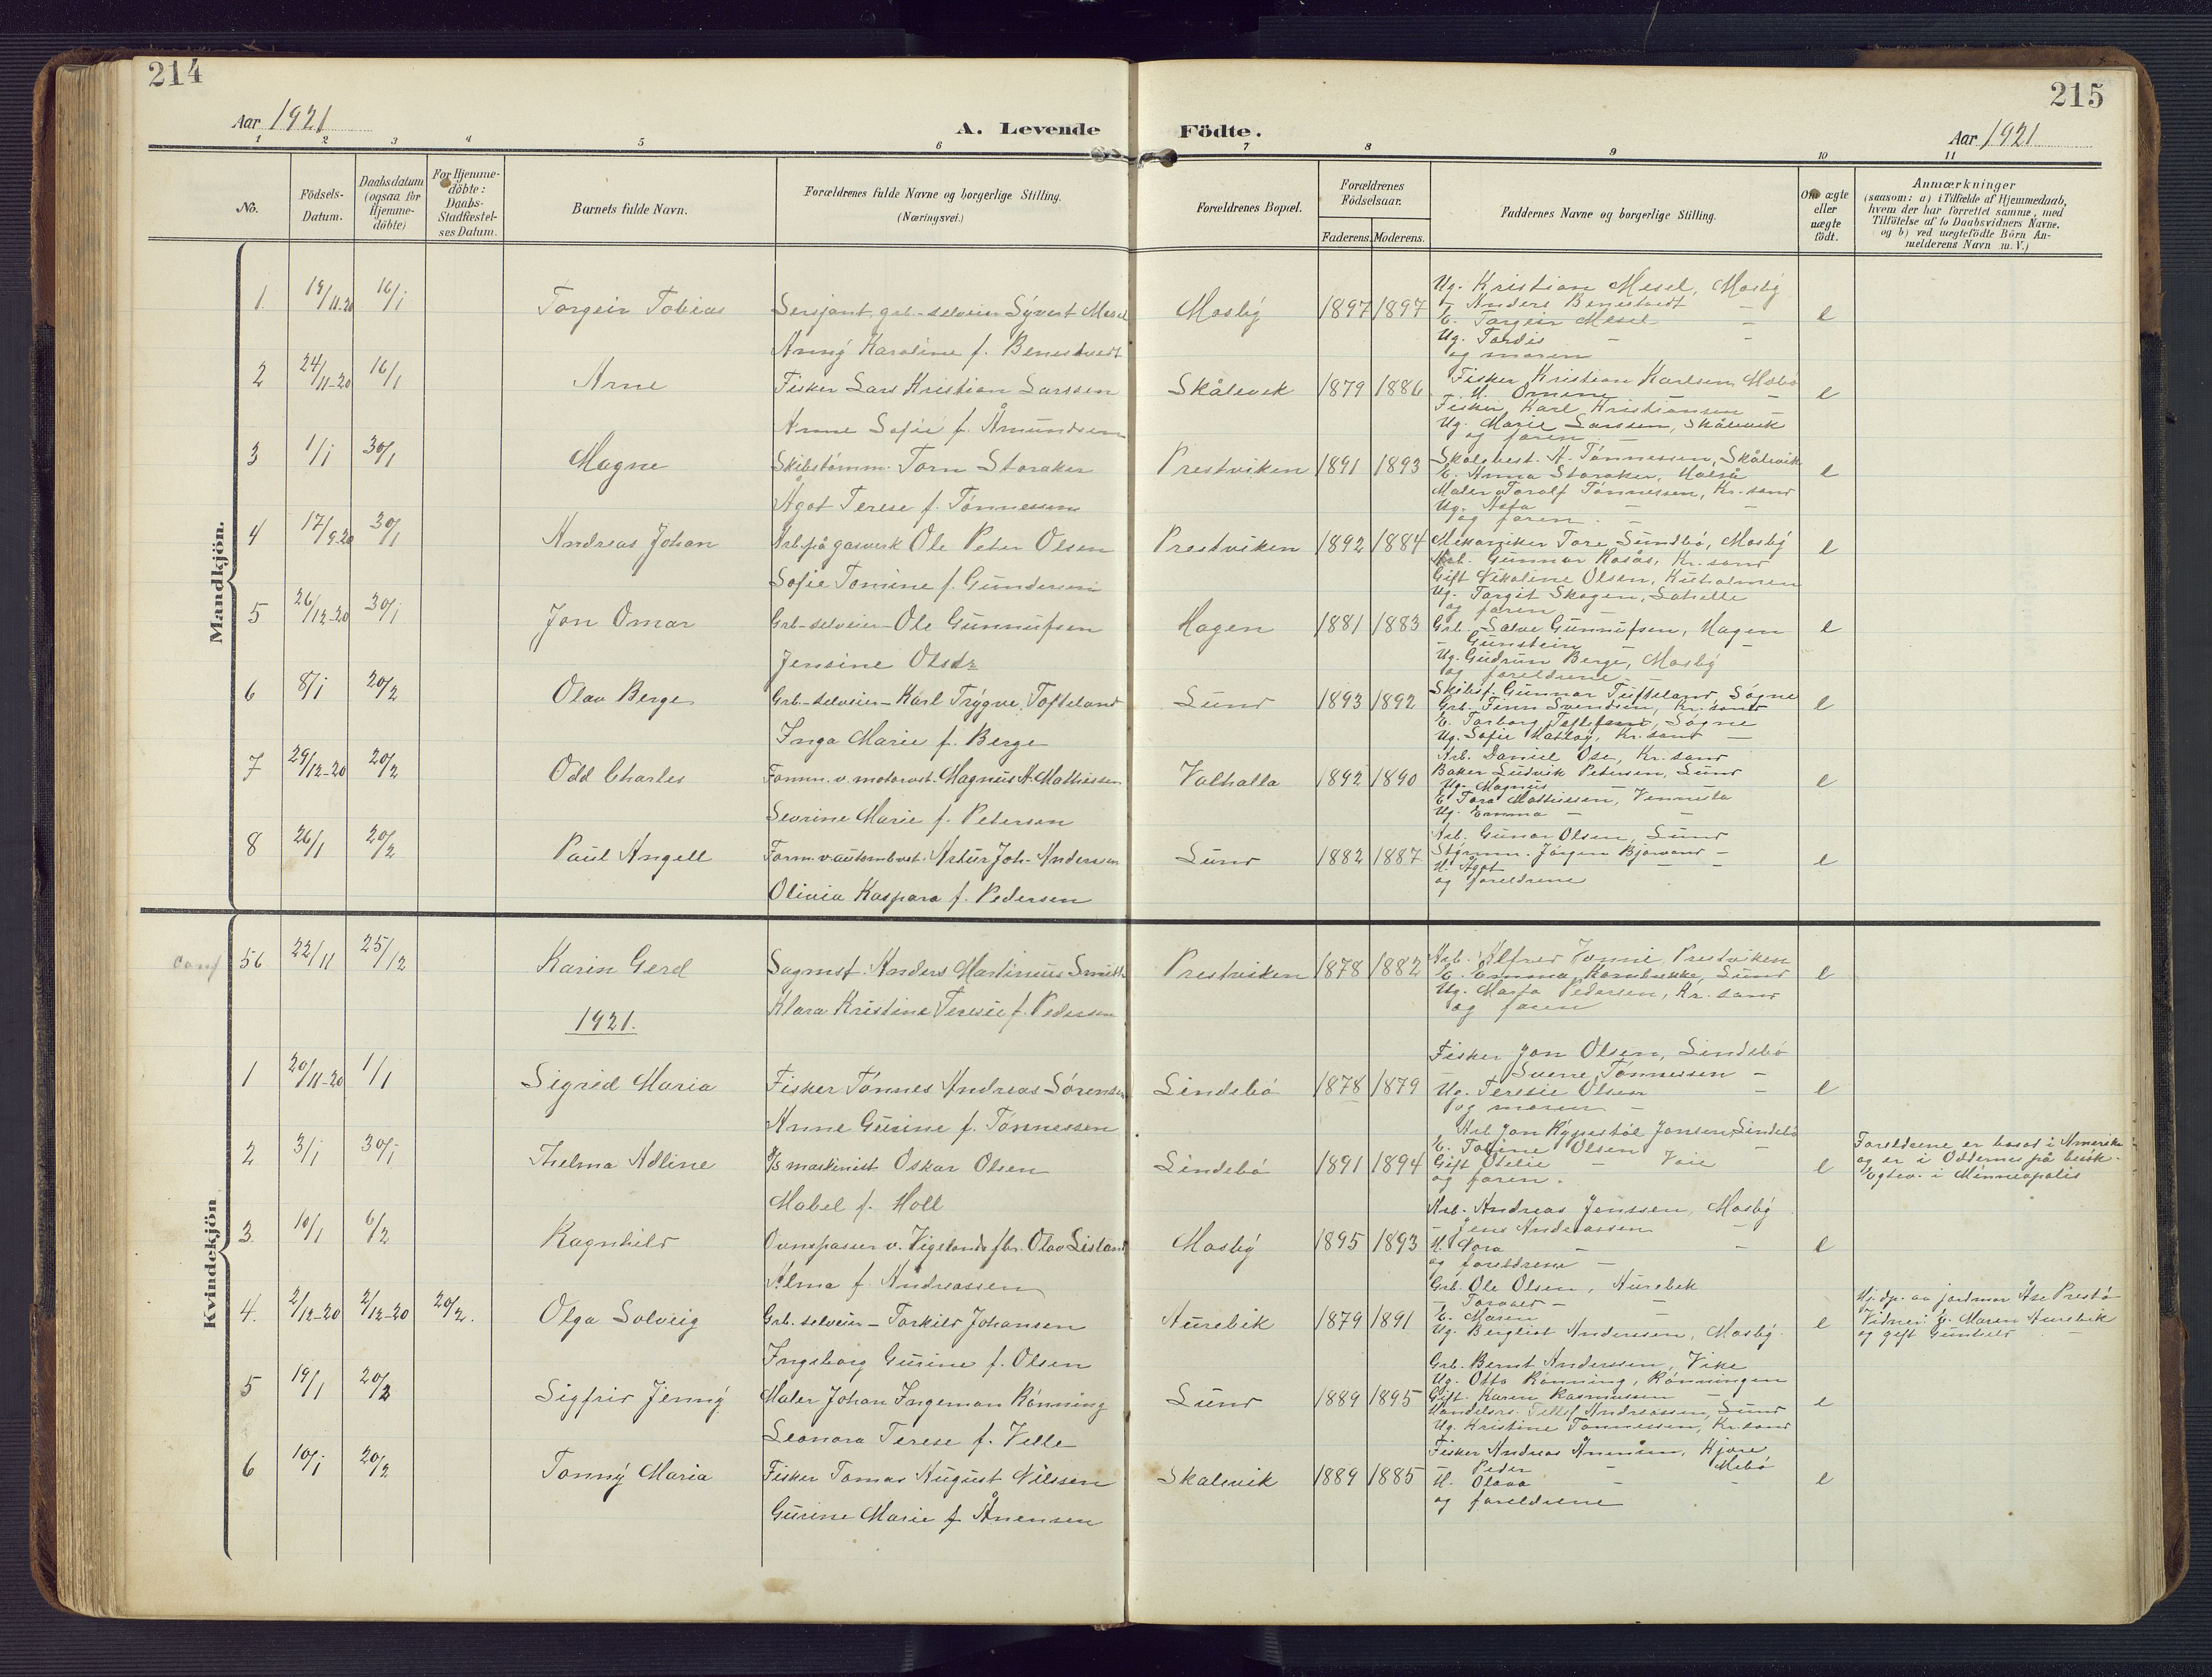 214
215
Aar 1921
A. Levende Födte.
Aar 1921
1 2 3 4 5 6 7 8 9 10 11
No.
Födsels-Datum.
Daabsdatum (ogsaa for Hjemme-döbte)
For Hjemme-döbte: Daabs-Stadfæstel-ses Datum.
Barnets fulde Navn.
Forældrenes fulde Navne og borgerlige Stilling.
(Næringsvei.)
Forældrenes Bopæl.
Forældrenes Födselsaar.
Faderens. Moderens.
Faddernes Navne og borgerlige Stilling.
Om ægte eller uægte födt.
Anmærkninger
(saasom: a) i Tilfælde af Hjemmedaab,
hvem der har forrettet samme, med
Tilföielse af to Daabsvidners Navne,
og b) ved uægtefödte Börn An-
melderens Navn m. V.)
Mandkjön.
1. 19/11-20 16/1 Torgeir Tobias Sersjant, grb-selveier Syvert Mesel Mosby 1897 1897 e
Anny Karoline f. Benestvedt
Ug. Kristian Mesel, Mosby
- Anders Benestvedt -
E. Torgeir Mesel -
Ug. Tordis - -
og moren
2 24/11-20 16/1 Arne Fisker Lars Kristian Larssen Skålevik 1879 1886 e
Anne Sofie f. Åmundsen
Fisker Kristian Karlsen, Mebö
Fisker Karl Kristiansen -
Ug. Marie Larssen, Skålevik
og faren
3 1/1 30/1 Magne Skibstömm. Torn Storaker Prestviken 1891 1893 e
Ågot Terese f. Tönnessen
Skolebest. A. Tönnessen, Skålevik
E. Anna Storaker,
Maler Toralf Tönnessen, Kr.sand
Ug. Asta - -
og faren.
4 17/9-20 30/1 Andreas Johan Arb. på gasverk Ole Peter Olsen Prestviken 1892 1884 e
Sofie Tomine f. Gundersen
Mekaniker Tore Sundbö, Mosby
Arb. Gunnar Rosås, Kr.sand
Gift Nikoline Olsen, Kuholmen
Ug. Torgit Skogen,
og faren
5 26/12-20 30/1 Jon Omar Grb-selveier-Ole Gunnufsen Hagen 1881 1883 e
Jensine Olsdr
Grb. Salve Gunnufsen, Hagen
- Gunstein - -
Ug. Gudrun Berge, Mosby
og foreldrene
6 8/1 20/2 Olav Berge Grb-selveier-Karl Trygve Tofteland Lund 1893 1892 e
Inga Marie f. Berge
Skibsf. Gunnar Tufteland, Sögne
Grb. Finn Svendsen, Kr.sand
E. Torborg Tofteland, Sögne
Ug. Sofie Kahlog, Kr.sand -
7 29/12-20 20/2 Odd Charles Formn. v. motorvst. Magnus A. Mathiesen Valhalla 1892 1890 e
Sevrine Marie f. Petersen
Arb. Daniel Ose, Kr.sand
Baker Ludvik Petersen, Lund
Ug. Magnus - -
E. Tora Mathiesen, Vennesla
Ug. Emma - -
8 26/1 20/2 Paul Angell Form. v. automb.vst. Artur Joh. Andersen Lund 1882 1887 e
Olivia Kaspara f. Pedersen
Arb. Gunar Olsen, Lund
Styrmn. Jörgen Bjorvand -
H. Ågot - -
og foreldrene
Kvindekjön
conf 56 22/11 25/12 Karin Gerd Sagmst. Anders Martinius Smith Prestviken 1878 1882 e
Klara Kristine Teresie f. Pedersen
Arb. Alfred Tomni, Prestviken
E. Emma Kornbrekke, Lund
Ug. Marta Pedersen, Kr.sand
og faren
1921.
1 20/11-20 1/1 Sigrid Maria Fisker Tönnes Andreas Sörensen Lindebö 1878 1879 e
Anne Gurine f. Tönnessen
Fisker Jon Olsen, Lindebö
- Sverre Tönnessen -
Ug. Teresie Olsen -
og moren
2 3/1 30/1 Thelma Adline D/S maskinist Oskar Olsen Lindebö 1891 1894 e
Mabel f. Holl
Arb. Jon Rypestöl Jansen, Lindebö
E. Tobine Olsen -
Gift Otelie - Voie
og faren.
Foreldrene er bosat i Amerika
og er i Oddernes på besök.
Egtev. i Minneapolis
3. 10/1 6/2 Ragnhild Ovnspasser v. Vigelands fbr. Olav Lisland Mosby 1895 1893 e
Alma f. Andreassen
Arb. Andreas Jenssen, Mosby
- Jens Andreassen
H. Nora - -
og foreldrene -
4. 2/12-20 2/12-20 20/2. Olga Solveig Grb. selveier-Torkild Johansen Aurebek 1879 1891 e
Ingeborg Gurine f. Olsen
Grb. Ole Olsen, Aurebek
- Torvald - -
E. Maren - -
Ug. Bergliot Anderssen, Mosby.
Hj.dp. av jordmor Åse Prestö
Vidner: E. Maren Aurebek
og gift Gunhild -
5 19/1 20/2 Sigfrid Jenny Maler Johan Ingeman Rönning Lund 1889 1895 e
Leonora Terese f. Velle
Grb. Bernt Anderssen, Vike
Ug. Otto Rönning, Rönningen
Gift. Karen Rasmussen -
Handelsrs. Tellef Andreassen, Lund
Ug. Kristine Tönnessen, Kr.sand
6 10/1 20/2 Tonny Maria Fisker Tomas August Nilssen Skålevik 1889 1885 e
Gurine Marie f. Ånensen
Fisker Andreas Ånensen, Kjöre
- Peder - Mebö
H. Olava - -
og foreldrene